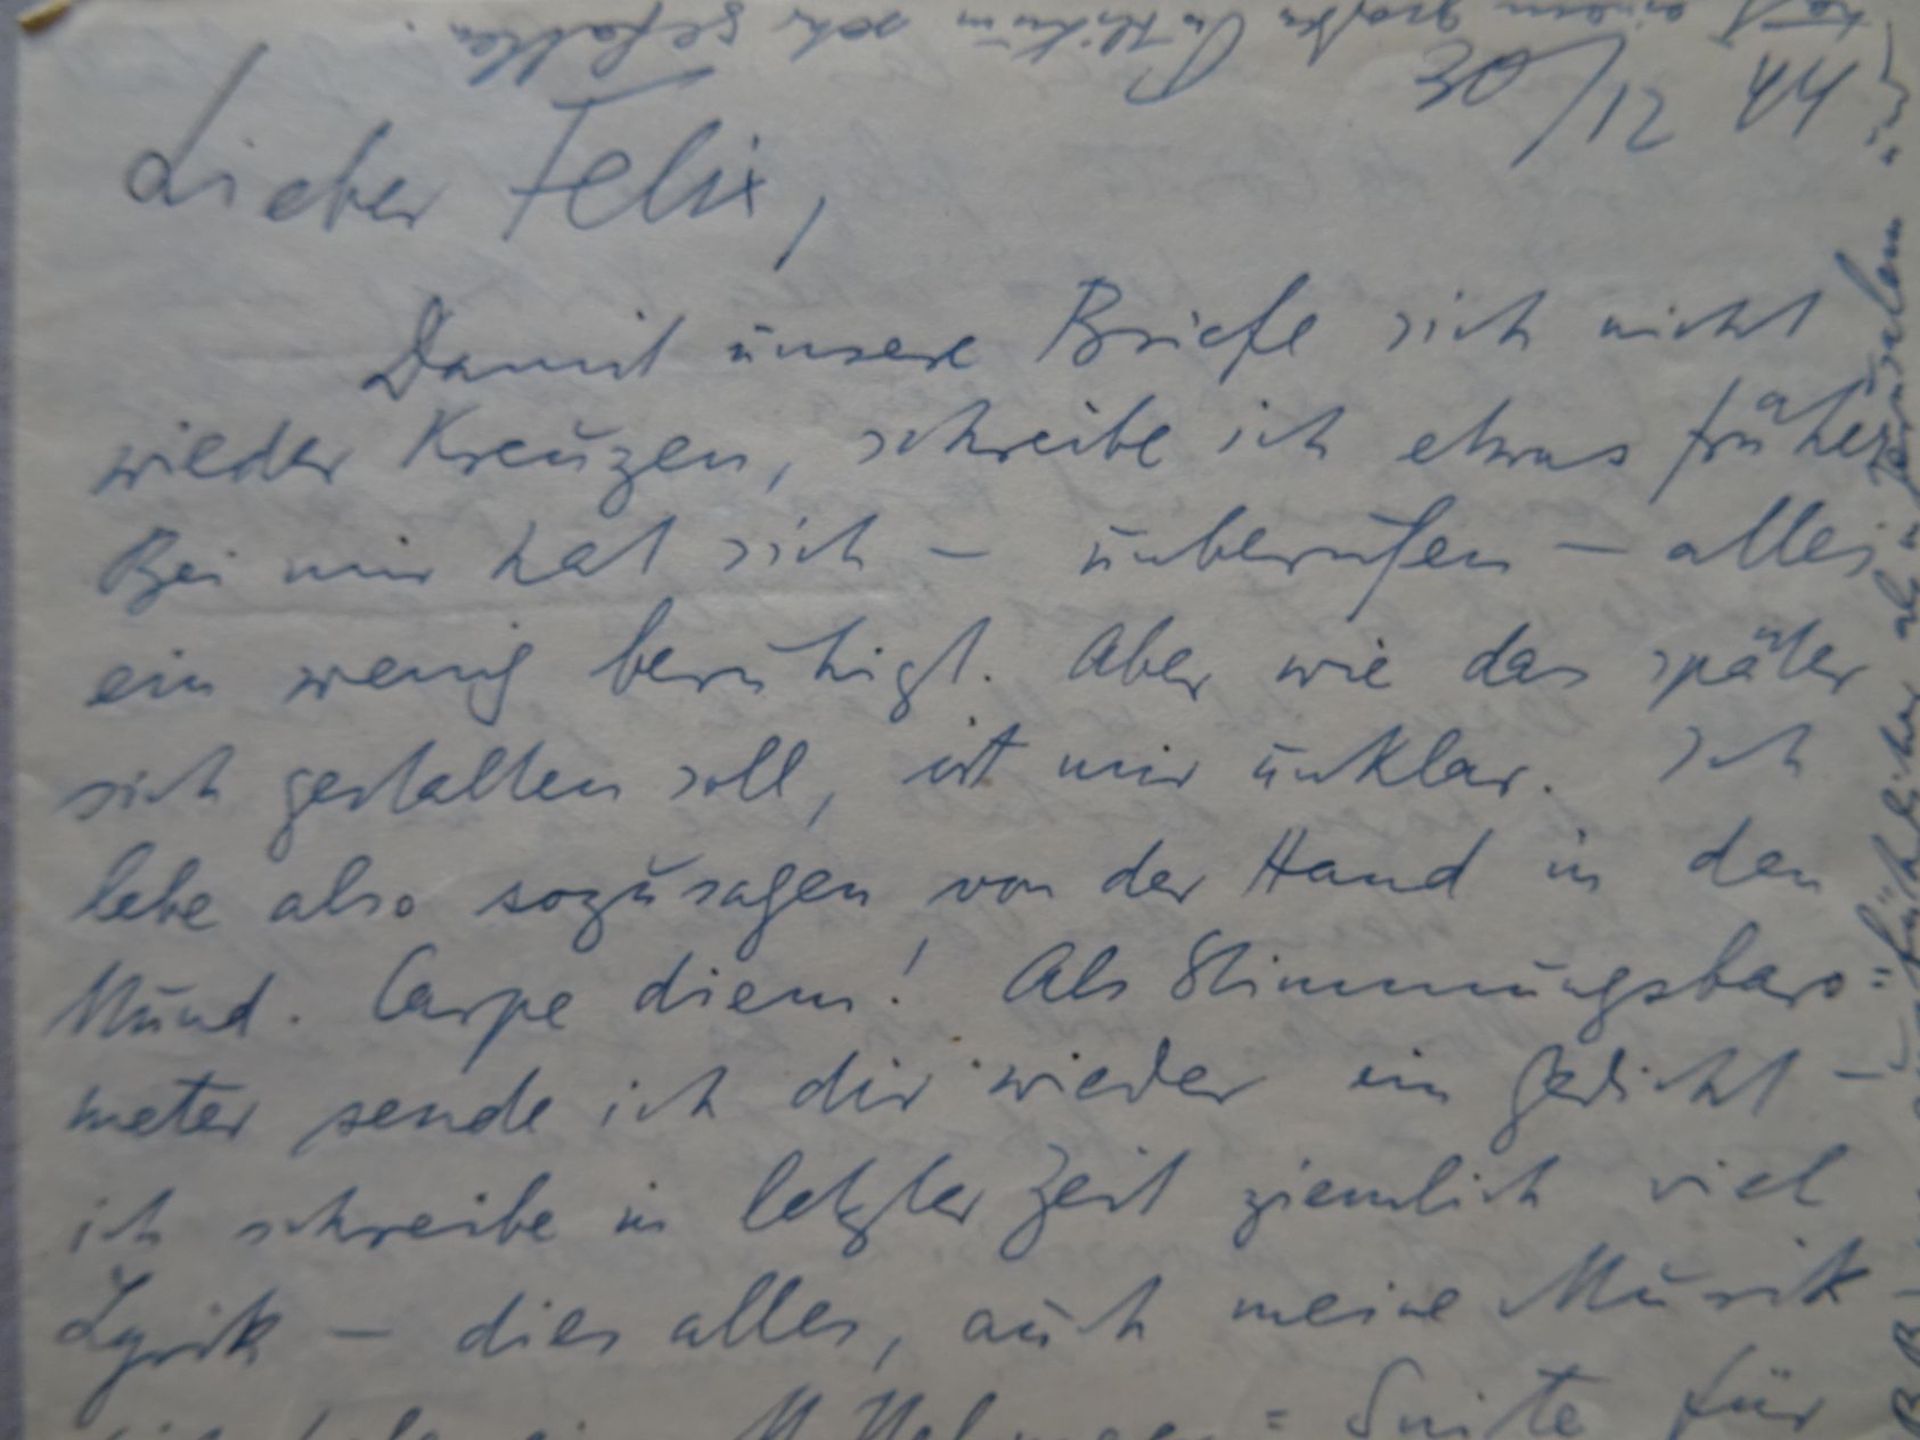 einem großen Publikum sehr gefallen.
30/12 44
Lieber Felix,
Damit unsere Briefe sich nicht
wieder Kreuzen, schreibe ich etwas früher
Bei mir hat sich – unberufen – alles
ein wenig beruhigt. Aber wie das später
sich gestalten soll, ist mir unklar. Ich
lebe also sozusagen von der Hand in den
Mund. Carpe diem! Als Stimmungsbaro=
meter sende ich dir wieder ein Gedicht –
ich schreibe in letzter Zeit ziemlich viel
Lyrik – dies alles, auch meine Musik –
= Suite für
in Jerusalem